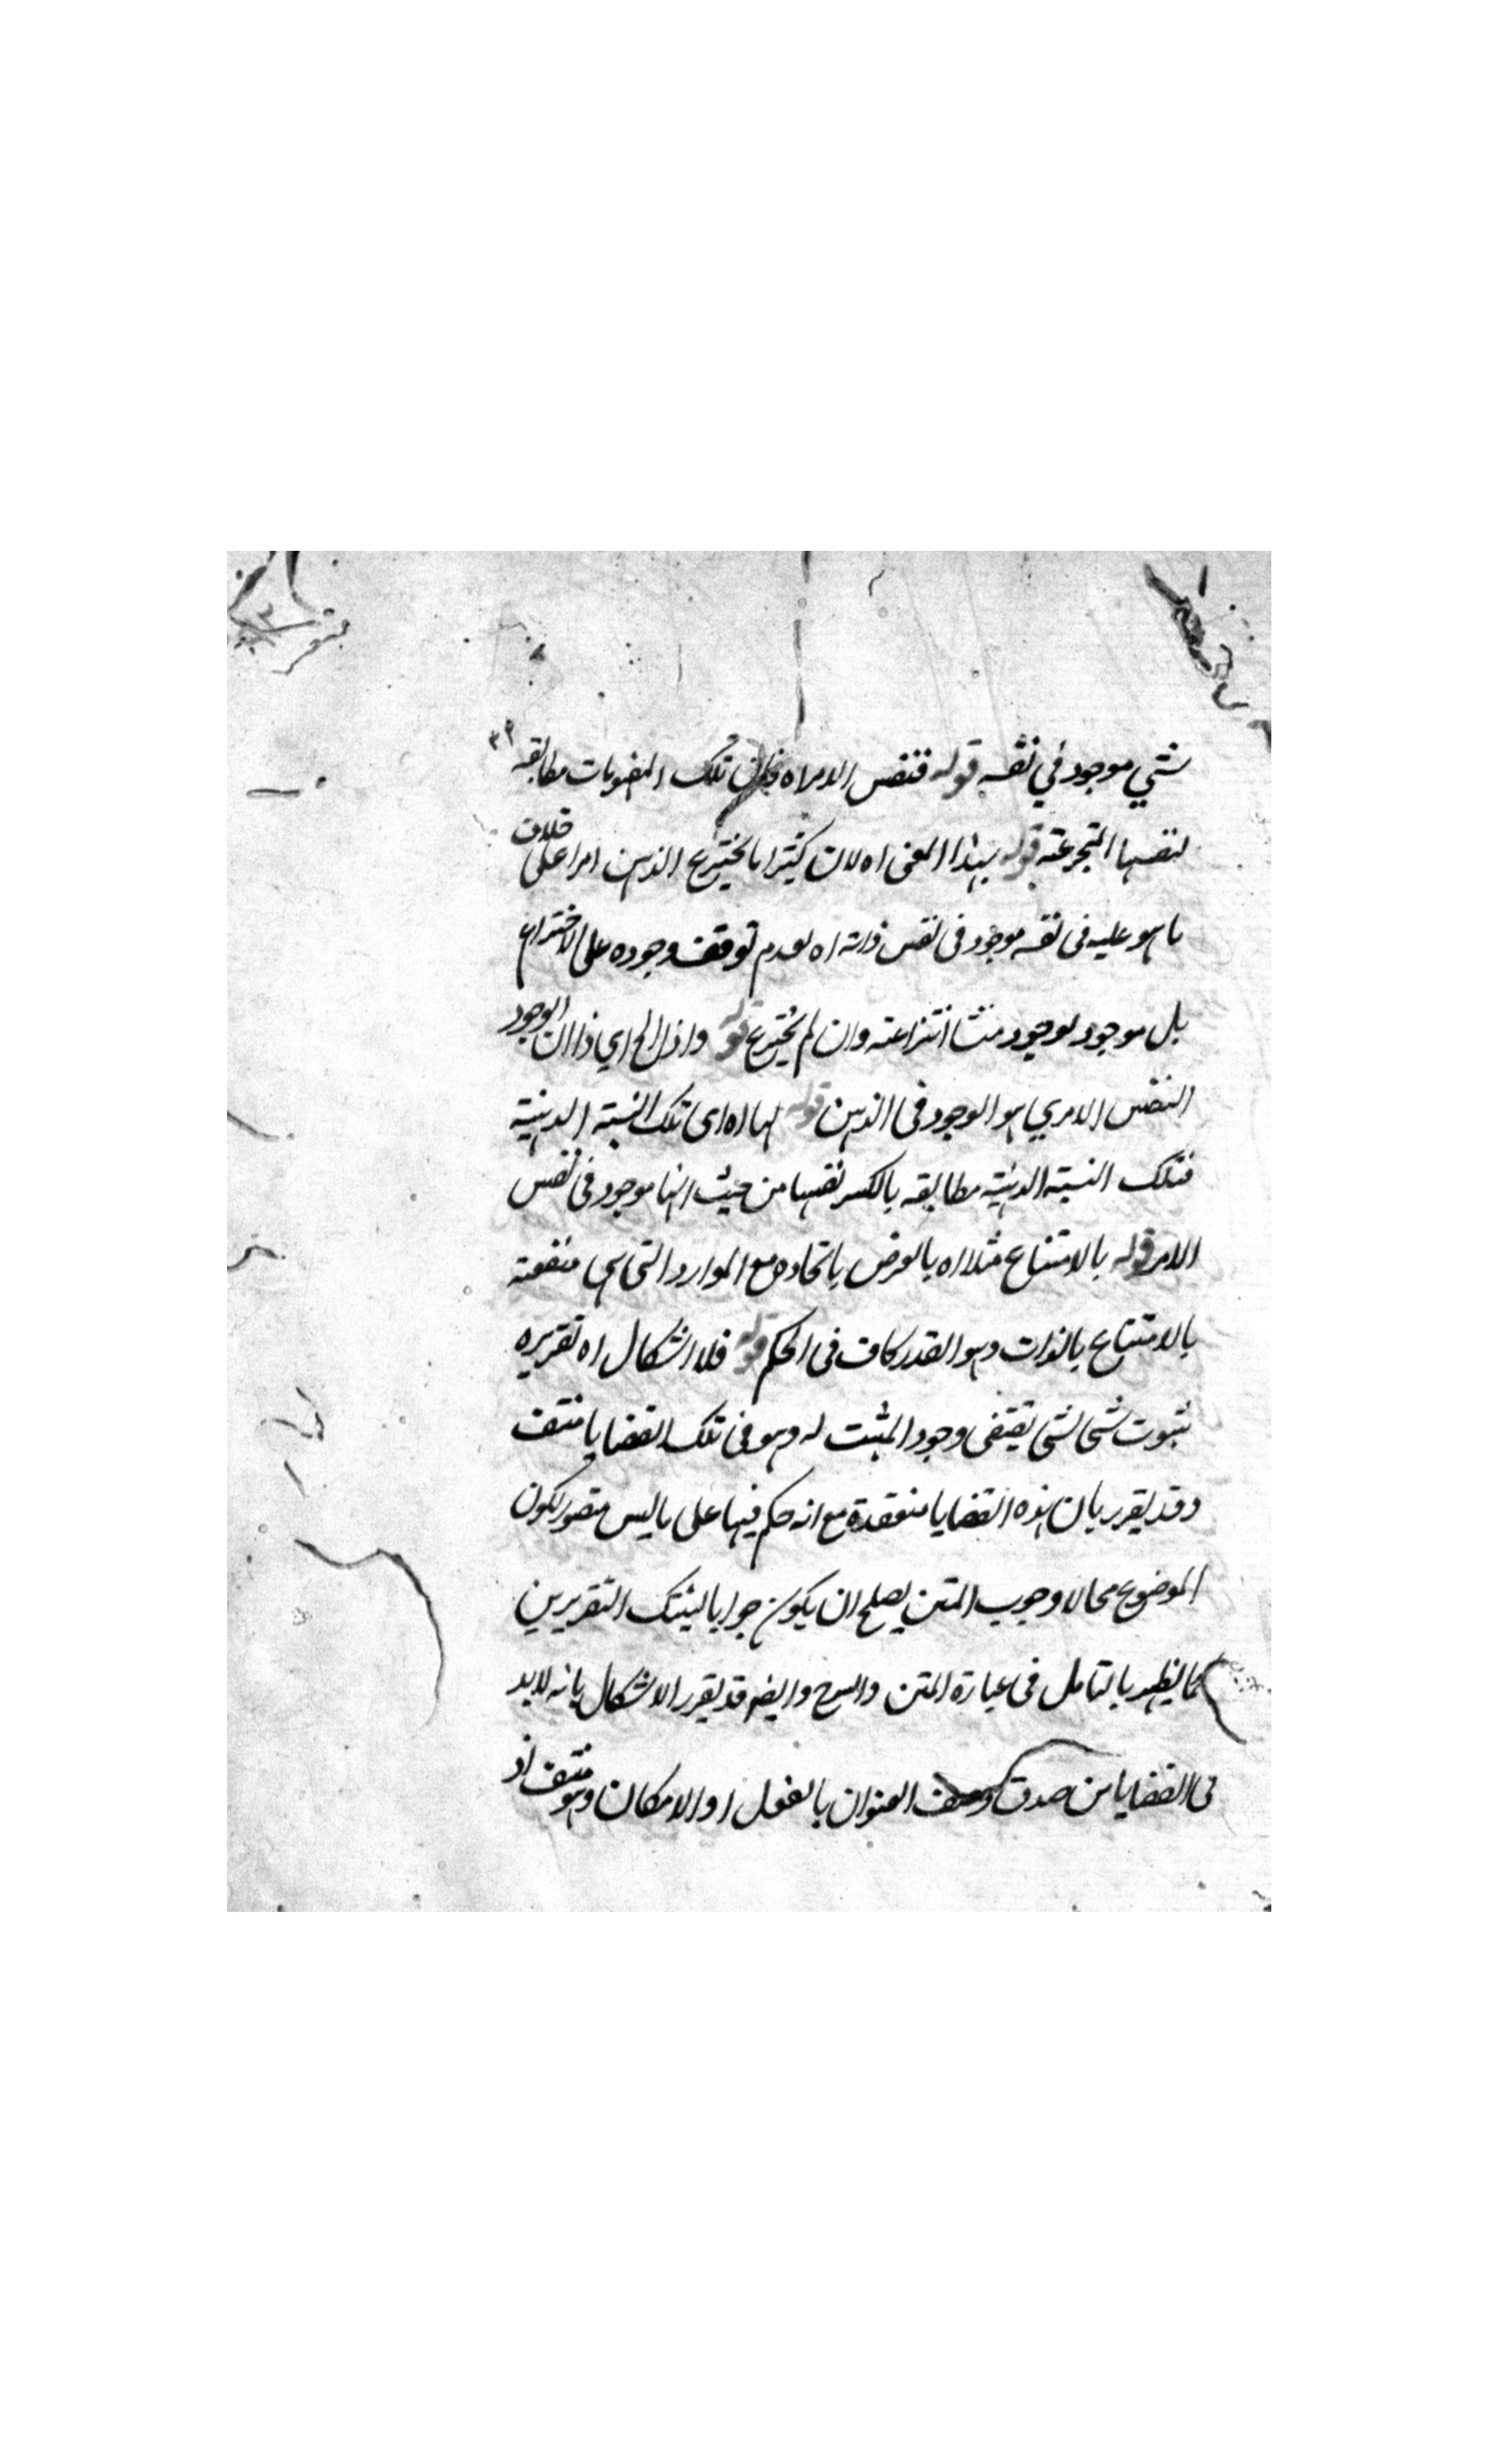 شئي موجود في نفسه قوله فنفس الامر اه فكان تلك المفهومات مطابقه
لنفسها المخترعته قوله بهذا المعنى اه لان كثيرا ما يخترع الذهن امرا على خلاف
ما هو عليه فى نفسه موجود فى نفس ذاته اه لعدم توقف وجوده على الاختراع
بل موجود لوجود منشا انتزاعته وان لم يخترع قوله واذا الخ اي اذا ان الوجود
النفس الامري هو الوجود فى الذهن قوله لها اه اى تلك النسبته الذهنية
فتلك النسبته الذهنية مطابقه بالكسر نفسها من حيث انها موجود فى نفس
الامر قوله بالامتناع مثلا اه بالعرض باتحاده مع الموارد التى هى متصفة
بالامتناع بالذات وهو القدر كاف فى الحكم قوله فلا اشكال اه تقريره
ثبوت شى لشى يقتضى وجود المثبت له وهو فى تلك القضايا منتف
وقد يقرر بان هذه القضايا منعقدة مع انه حكم فيها على ما ليس متصور لكون
الموضوع محالا وجوب المتن يصلح ان يكون جوابا لينتك التقريرين
كما يظهر بالتامل فى عبارة المتن والشرح وايضه قد يقرر الاشكال بانه لا بد
فى القضايا من صدق وصف العنوان بالفعل او الامكان وهو منتف اذ